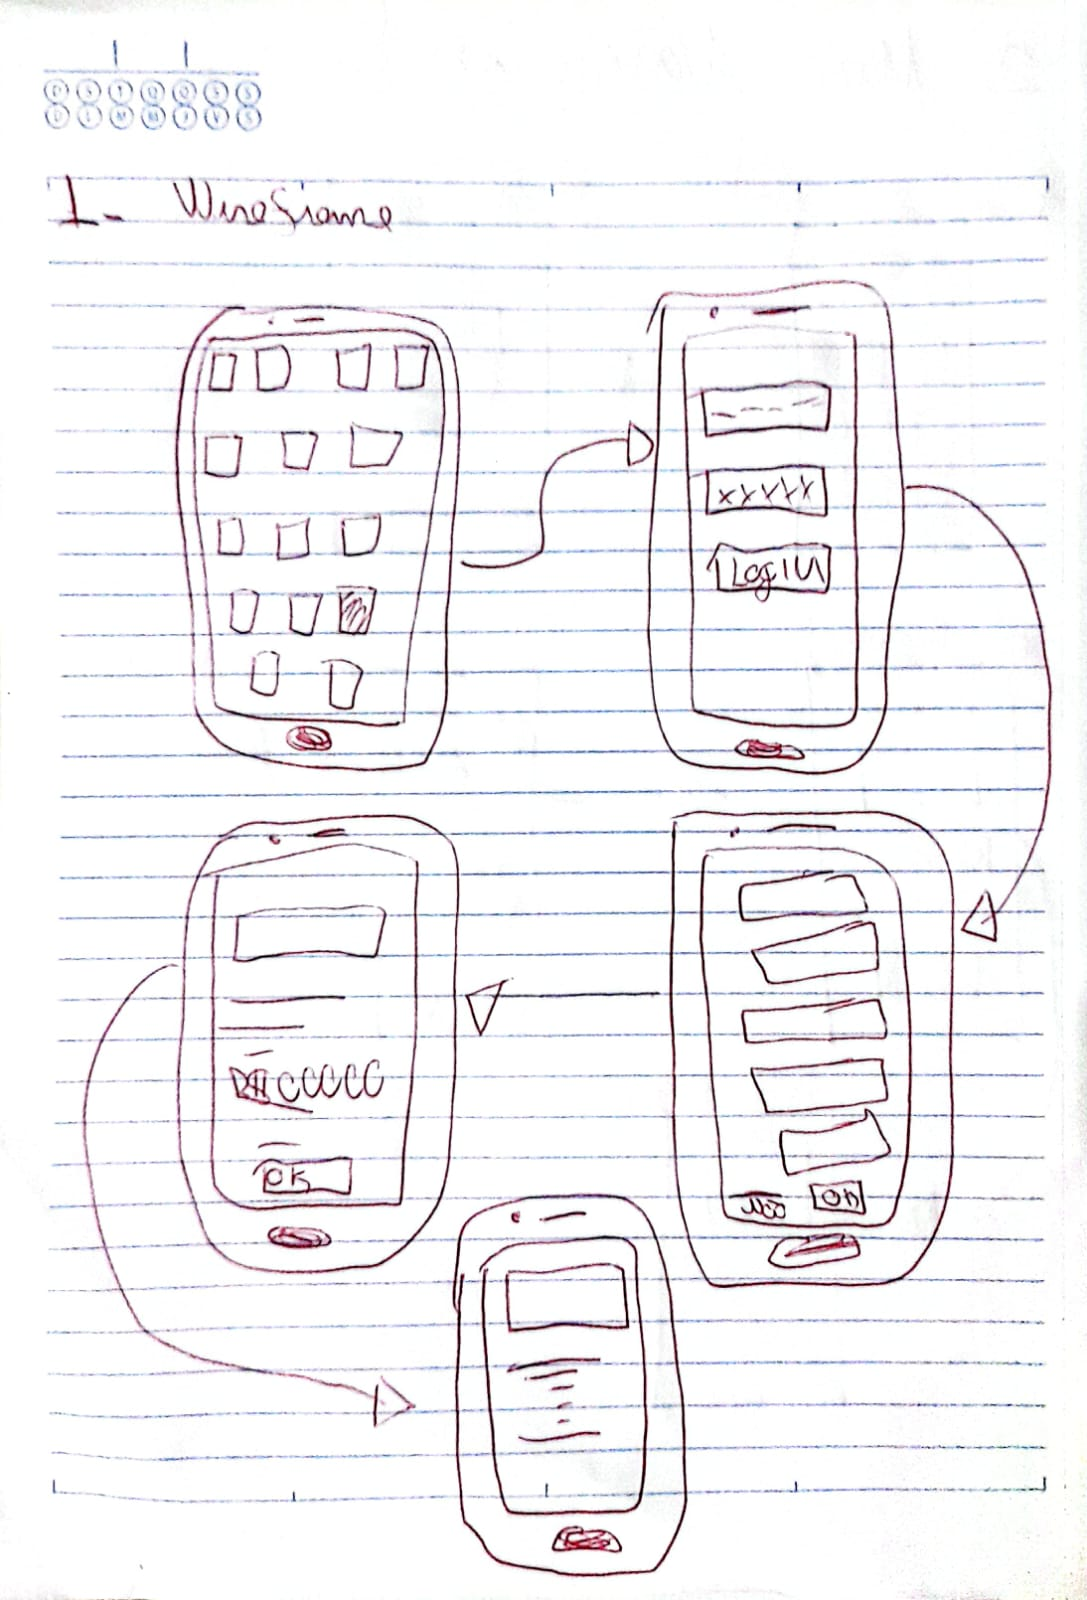 D S T Q Q S S
D L M M J V S
1- Wireframe
xxxxx
Login
OK
OK